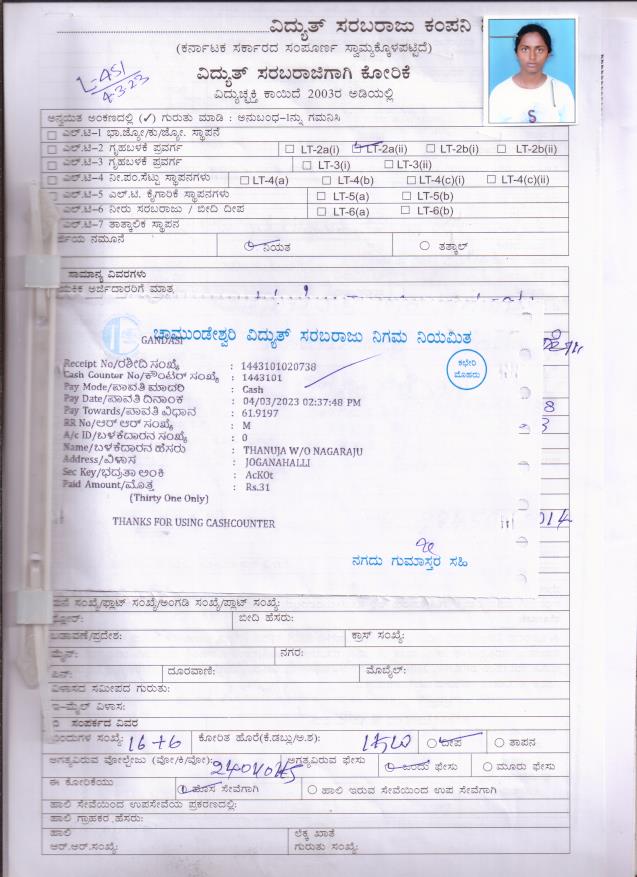 ವಿದ್ಯುತ್ ಸರಬರಾಜು ಕಂಪನಿ
(ಕರ್ನಾಟಕ ಸರ್ಕಾರದ ಸಂಪೂರ್ಣ ಸ್ವಾಮ್ಯಕ್ಕೊಳಪಟ್ಟಿದೆ)
ವಿದ್ಯುತ್ ಸರಬರಾಜಿಗಾಗಿ ಕೋರಿಕೆ
ವಿದ್ಯುಚ್ಛಕ್ತಿ ಕಾಯಿದೆ 2003ರ ಅಡಿಯಲ್ಲಿ
L-451
4-3-23
ಅನ್ವಯಿತ ಅಂಕಣದಲ್ಲಿ (✓) ಗುರುತು ಮಾಡಿ : ಅನುಬಂಧ-1ನ್ನು ಗಮನಿಸಿ
ಎಲ್.ಟಿ-1 ಭಾ.ಜ್ಯೋ/ಕು/ಜ್ಯೋ. ಸ್ಥಾಪನೆ
ಎಲ್.ಟಿ-2 ಗೃಹಬಳಕೆ ಪ್ರವರ್ಗ LT-2a(i) LT-2a(ii) LT-2b(i) LT-2b(ii)
ಎಲ್.ಟಿ-3 ಗೃಹಬಳಕೆ ಪ್ರವರ್ಗ LT-3(i) LT-3(ii)
ಎಲ್.ಟಿ-4 ನೀ.ಪಂ.ಸೆಟ್ಟು ಸ್ಥಾಪನಗಳು LT-4(a) LT-4(b) LT-4(c)(i) LT-4(c)(ii)
ಎಲ್.ಟಿ-5 ಎಲ್.ಟಿ. ಕೈಗಾರಿಕೆ ಸ್ಥಾಪನಗಳು LT-5(a) LT-5(b)
ಎಲ್.ಟಿ-6 ನೀರು ಸರಬರಾಜು / ಬೀದಿ ದೀಪ LT-6(a) LT-6(b)
ಎಲ್.ಟಿ-7 ತಾತ್ಕಾಲಿಕ ಸ್ಥಾಪನ
ನಮೂನೆ ನಿಯತ ತತ್ಕಾಲ್
ಸಾಮಾನ್ಯ ವಿವರಗಳು
ಅರ್ಜಿದಾರರಿಗೆ ಮಾತ್ರ
ಚಾಮುಂಡೇಶ್ವರಿ ವಿದ್ಯುತ್ ಸರಬರಾಜು ನಿಗಮ ನಿಯಮಿತ
GANDASI
ಕಛೇರಿ
ಮೊಹರು
Receipt No/ರಶೀದಿ ಸಂಖ್ಯೆ : 1443101020738
Cash Counter No/ಕೌಂಟರ್ ಸಂಖ್ಯೆ : 1443101
Pay Mode/ಪಾವತಿ ಮಾದರಿ : Cash
Pay Date/ಪಾವತಿ ದಿನಾಂಕ : 04/03/2023 02:37:48 PM
Pay Towards/ಪಾವತಿ ವಿಧಾನ : 61.9197
RR No/ಆರ್ ಆರ್ ಸಂಖ್ಯೆ : M
A/c ID/ಬಳಕೆದಾರನ ಸಂಖ್ಯೆ : 0
Name/ಬಳಕೆದಾರನ ಹೆಸರು : THANUJA W/O NAGARAJU
Address/ವಿಳಾಸ : JOGANAHALLI
Sec Key/ಭದ್ರತಾ ಅಂಕಿ : AcKOt
Paid Amount/ಮೊತ್ತ : Rs.31
(Thirty One Only)
THANKS FOR USING CASHCOUNTER
ನಗದು ಗುಮಾಸ್ತರ ಸಹಿ
ಮನೆ ಸಂಖ್ಯೆ/ಫ್ಲಾಟ್ ಸಂಖ್ಯೆ/ಅಂಗಡಿ ಸಂಖ್ಯೆ/ಪ್ಲಾಟ್ ಸಂಖ್ಯೆ:
ಬೀದಿ ಹೆಸರು:
ಬಡಾವಣೆ/ಪ್ರದೇಶ: ಕ್ರಾಸ್ ಸಂಖ್ಯೆ:
ಮೈನ್: ನಗರ:
ಪಿನ್: ದೂರವಾಣಿ: ಮೊಬೈಲ್:
ವಿಳಾಸದ ಸಮೀಪದ ಗುರುತು:
ಇ-ಮೈಲ್ ವಿಳಾಸ:
ಸಂಪರ್ಕದ ವಿವರ
ಬಿಂದುಗಳ ಸಂಖ್ಯೆ: 16+6 ಕೋರಿತ ಹೊರೆ(ಕೆ.ಡಬ್ಲು/ಅ.ಶ): ದೀಪ ತಾಪನ
ಅಗತ್ಯವಿರುವ ವೋಲ್ಟೇಜು (ವೋ/ಕಿ/ವೋ): 240Volts ಅಗತ್ಯವಿರುವ ಫೇಸು ಒಂದು ಫೇಸು ಮೂರು ಫೇಸು
ಈ ಕೋರಿಕೆಯು ಹೊಸ ಸೇವೆಗಾಗಿ ಹಾಲಿ ಇರುವ ಸೇವೆಯಿಂದ ಉಪ ಸೇವೆಗಾಗಿ
ಹಾಲಿ ಸೇವೆಯಿಂದ ಉಪಸೇವೆಯ ಪ್ರಕರಣದಲ್ಲಿ:
ಹಾಲಿ ಗ್ರಾಹಕರ ಹೆಸರು:
ಹಾಲಿ ಲೆಕ್ಕ ಖಾತೆ
ಆರ್.ಆರ್.ಸಂಖ್ಯೆ: ಗುರುತು ಸಂಖ್ಯೆ: